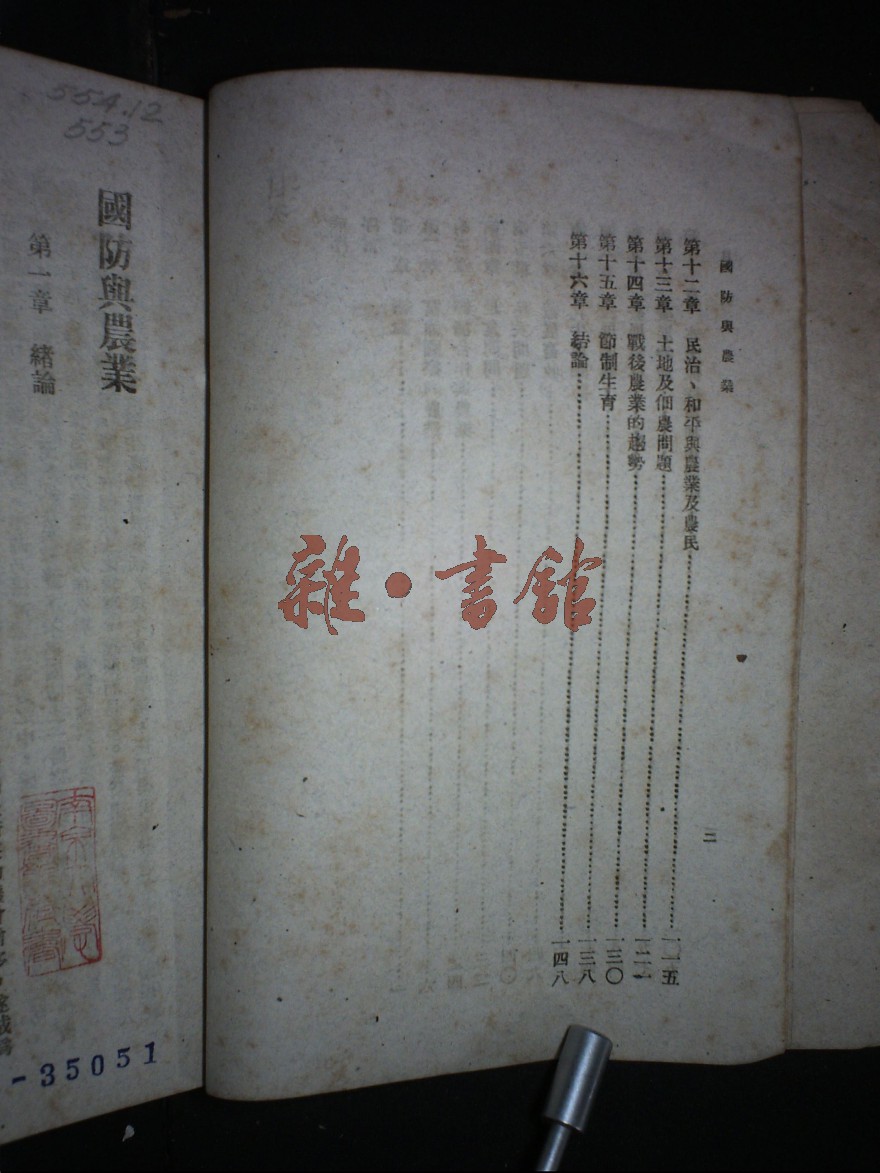 國防與農業
第十二章 民治、和平與農業及農民…………一一五
第十三章 土地及佃農問題…………一二一
第十四章 戰後農業的趨勢…………一三〇
第十五章 節制生育…………一三八
第十六章 結論…………一四八
二
554.12
553
國防與農業
第一章 緒論
-35051
雜·書館